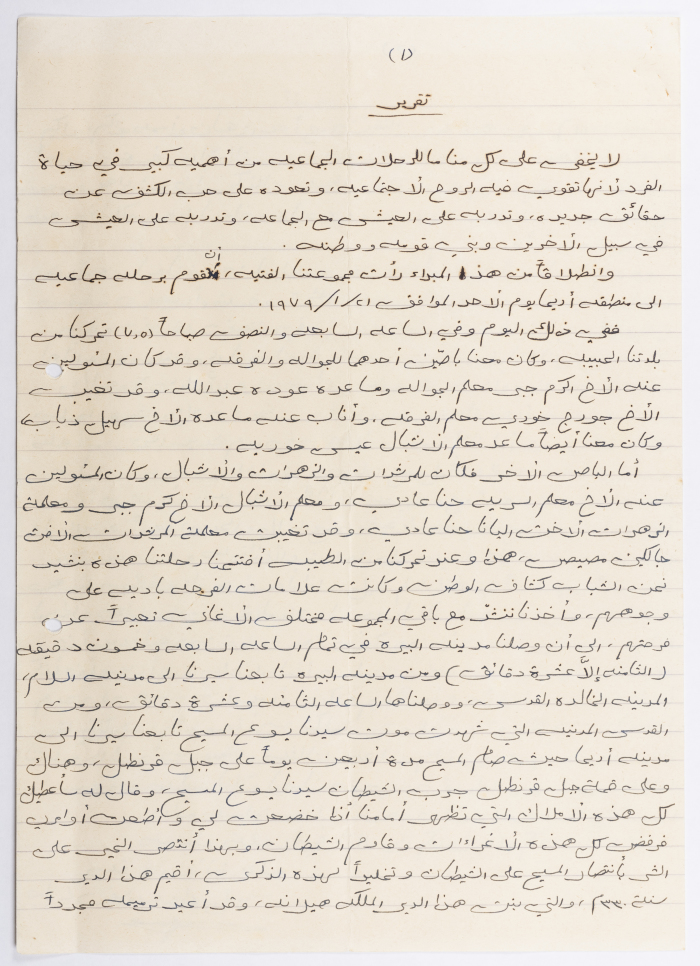 (١)
تقرير
لا يخفى على كل منا ما للرحلات الجماعيه من أهميه كبيره في حياة
الفرد لأنها تقوي فيه الروح الاجتماعيه، وتعوده على حب الكشف عن
حقائق جديده، وتدربه على العيش مع الجماعه، وتدربه على العيش
في سبيل الآخرين وبني قومه ووطنه .
وانطلاقاً من هذا المبدأ رأت مجموعتنا الفتيه، أن تقوم برحله جماعيه
الى منطقه أريحا يوم الأحد الموافق ٢١/١/١٩٧٩.
ففي ذلك اليوم وفي الساعه السابعه والنصف صباحاً (٧،٥) تحركنا من
بلدتنا الحبيبه، وكان معنا باصّين أحدهما للجواله والفرقه، وقد كان المسئولين
عنه الأخ اكرم جبر معلم الجواله ومساعده عوده عبدالله، وقد تغيب
الأخ جورج خوري معلم الفرقه، وأناب عنه مساعده الأخ سهيل ذياب،
وكان معنا أيضاً مساعد معلم الاشبال عيسى خوريه .
أما الباص الآخر فكان للمرشدات والزهرات والاشبال، وكان المسئولين
عنه الأخ معلم السريه حنا عادي، ومعلم الاشبال الأخ كرم جبر ومعلمة
الزهرات الأخت اليانا حنا عادي، وقد تغيبت معلمة المرشدات الأخت
جاكلين مصيص، هذا وعند تحركنا من الطيبه أفتتحنا رحلتنا هذه بنشيد
نحن الشباب كشاف الوطن وكانت علامات الفرحه باديه على
وجوههم، وأخذنا ننشد مع باقي المجموعه مختلف الأغاني تعبيراً عن
فرحتهم، الى أن وصلنا مدينه البيره في تمام الساعه السابعه وخمسون دقيقه
(الثامنه إلاّ عشرة دقائق) ومن مدينه البيره تابعنا سيرنا الى مدينه السلام،
المدينه الخالده القدس، ووصلناها الساعه الثامنه وعشرة دقائق، ومن
القدس المدينه التي شهدت موت سيدنا يسوع المسيح تابعنا سيرنا الى
مدينه أريحا حيث صام المسيح مدة أربعين يوماً على جبل قرنطل، وهناك
وعلى قمة جبل قرنطل جرب الشيطان سيدنا يسوع المسيح، وقال له سأعطيك
كل هذه الأملاك التي تظهر أمامنا أذا خضعت لي وأطعت أوامري
فرفض كل هذه الأغراءات وقاوم الشيطان، وبهذا أنتصر الخير على
الشر بأنتصار المسيح على الشيطان وتخليداً لهذه الذكرى، أقيم هذا الدير
سنة ٣٣٠م، والتي بنت هذا الدير الملكه هيلانه، وقد أعيد ترميمه مجدداً